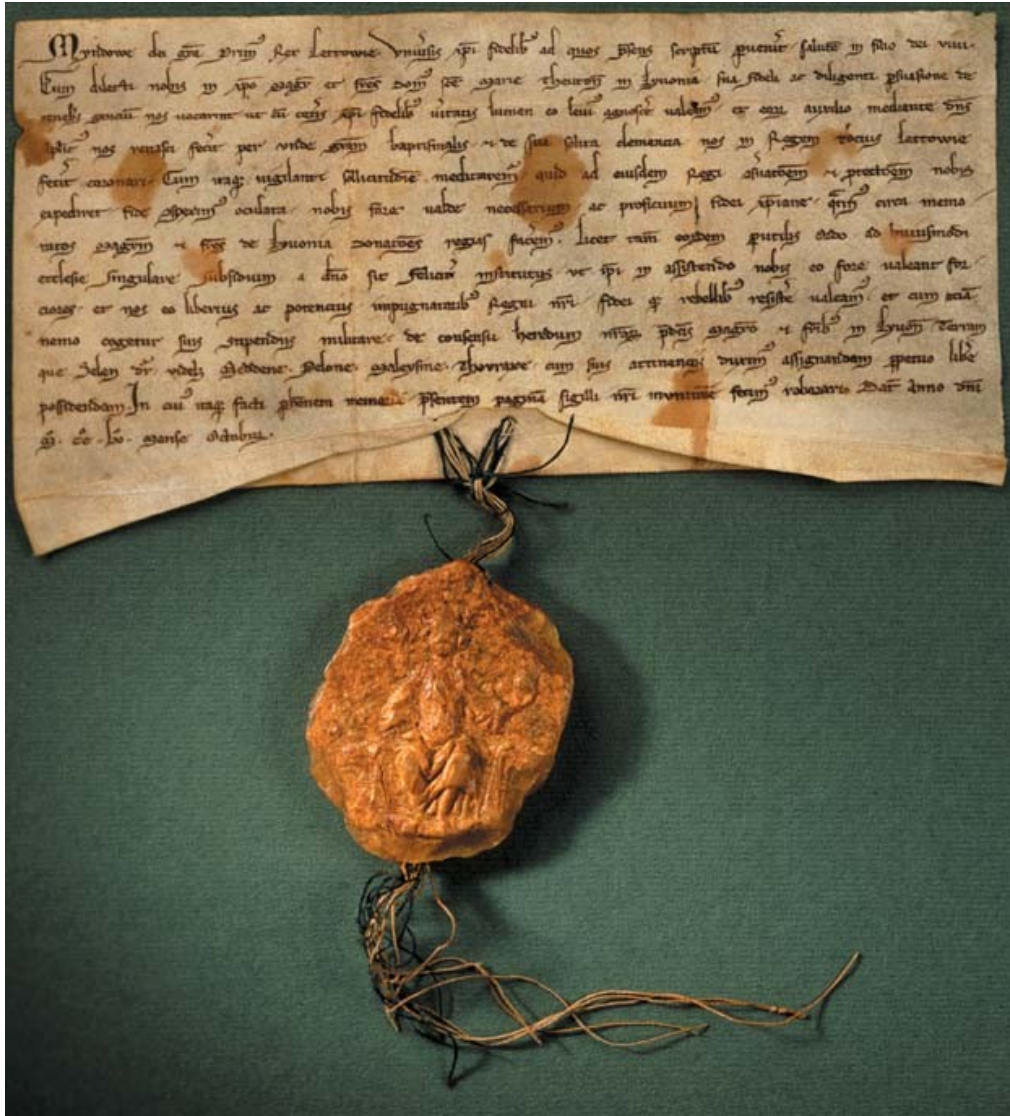 Myndowe dei gra prim9 Rex Lettowie Vniu̾sis xp̄i fidelib9 ad quos p̄sens scriptū puenit salutē in filio dei viui.
Cum dilecti nobis in xp̄o Magr̄ et fr̄es Dom9 sc̄e Marie Theuton̄ in Lyuonia sua fideli ac diligenti p̄suasione de
tenebris nos uocarint ut cū cet̄is xp̄i fidelib9 u̾itatis lumen eo leui9 agnosce̾ valeam9 et eor̄ auxilio mediante dn̄s
nos renasci fecit per vnde grām baptismalis ⁊ de sua solita clemencia nos in Regem tocius Lettowie
fecit coronari. Cum itaq̨ vigilanti sollicitudīe meditarem̄ quid ad eiusdem Regni ⁊ protectōem nobis
expediret fide oculata nobis fore valde necessarium ac proficuum fidei xp̄iane circa memo
ratos Magrm̄ ⁊ fr̄es de Lyuonia donatōes regias facēm. Licet tam̄ eosdem ad huiusmodi
ecclesie singulare subsidium a dn̄o sit felicit̾ institutus vt ip̄i in assistendo nobis eo fore valeant for
ciores et nos eo liberius ac potencius impugnatorib9 Regni nr̄i fidei q̨ rebellib9 resiste̾ valeam9. et cum eciā
nemo cogetur suis stipendiis militare de consensu heredum nr̄orq̨ p̄dc̄is Magr̄o ⁊ fr̄ib9 in Lyuon̄ Terram
que Selen dr̄ videlz Meddene. Pelone. Maleysine. Thovraxe. cum suis attinenciis duxim9 assignandam ppetuo lib̾e
possidendam. In cui9 itaq̨ facti p̄hennem memoriā p̄sentem paginā sigilli nr̄i munimine fecim9 roborari. Dat̄ anno dn̄i
M̄. c̄c̄. lv̄o. Mense Octobris.